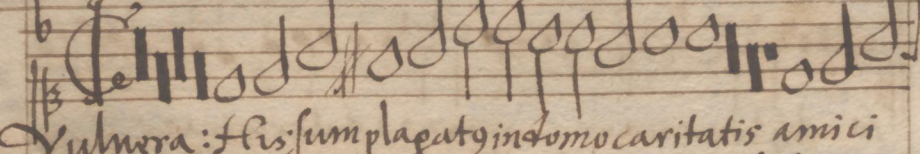 Vulnera: His sum plagatꝯ in domo caritatis amici